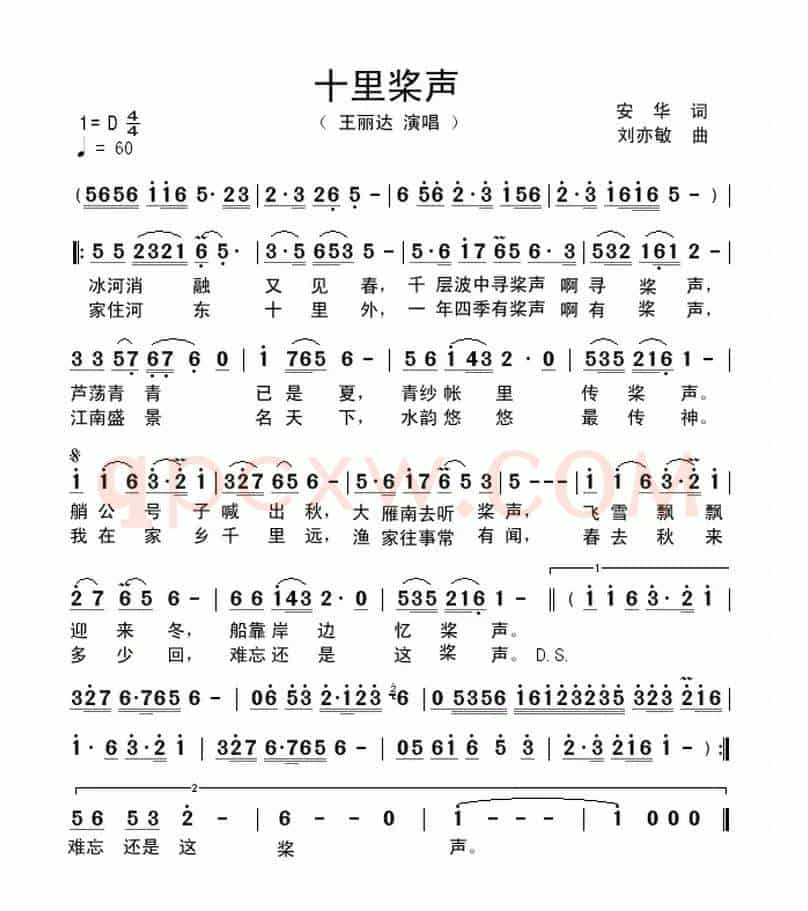 十里桨声
1=D 4/4
（ 王丽达 演唱 ）
安 华 词
♩ = 60
刘亦敏 曲
（5656 116 5· 23 | 2·3 26 5 – | 6 56 2·3 156 | 2·3 1616 5 – ）|
‖: 5 5 2321 6 5· | 3·5 653 5 – | 5·6 17 65 6·3 | 532 161 2 – |
冰河消 融 又 见 春， 千 层波中寻桨声 啊 寻 桨 声，
家住河 东 十 里 外， 一 年四季有桨声 啊 有 桨 声，
3 3 57 67 6 0 | 1 765 6 – | 5 6 143 2·0 | 535 216 1 – |
芦荡青 青 已 是 夏， 青纱 帐 里 传 桨 声。
江南盛 景 名 天 下， 水韵 悠 悠 最 传 神。
qpcxw.com
1 1 6 3·2 1 | 327 65 6 – | 2·6 17 65 3 | 5 – – – | 1 1 6 3·2 1 |
艄 公 号 子 喊 出 秋， 大 雁南去听 桨 声， 飞 雪 飘 飘
我 在 家 乡 千 里 远， 渔 家往事常 有 闻， 春 去 秋 来
1
2 7 65 6 – | 6 6 143 2·0 | 535 216 1 – ‖ （ 1 1 6 3·2 1 |
迎 来 冬， 船靠 岸 边 忆 桨 声。
多 少 回， 难忘 还 是 这 桨 声。 D.S.
327 6·765 6 – | 06 53 2·123 6 | 0 5356 16123235 323 216 |
1· 6 3·2 1 | 327 6·765 6 – | 05 61 6 5 3 | 2·3 216 1 – ）:‖
2
56 53 2 – | 6 – – 0 | 1 – – – | 1 0 0 0 ‖
难忘 还是 这 桨 声。